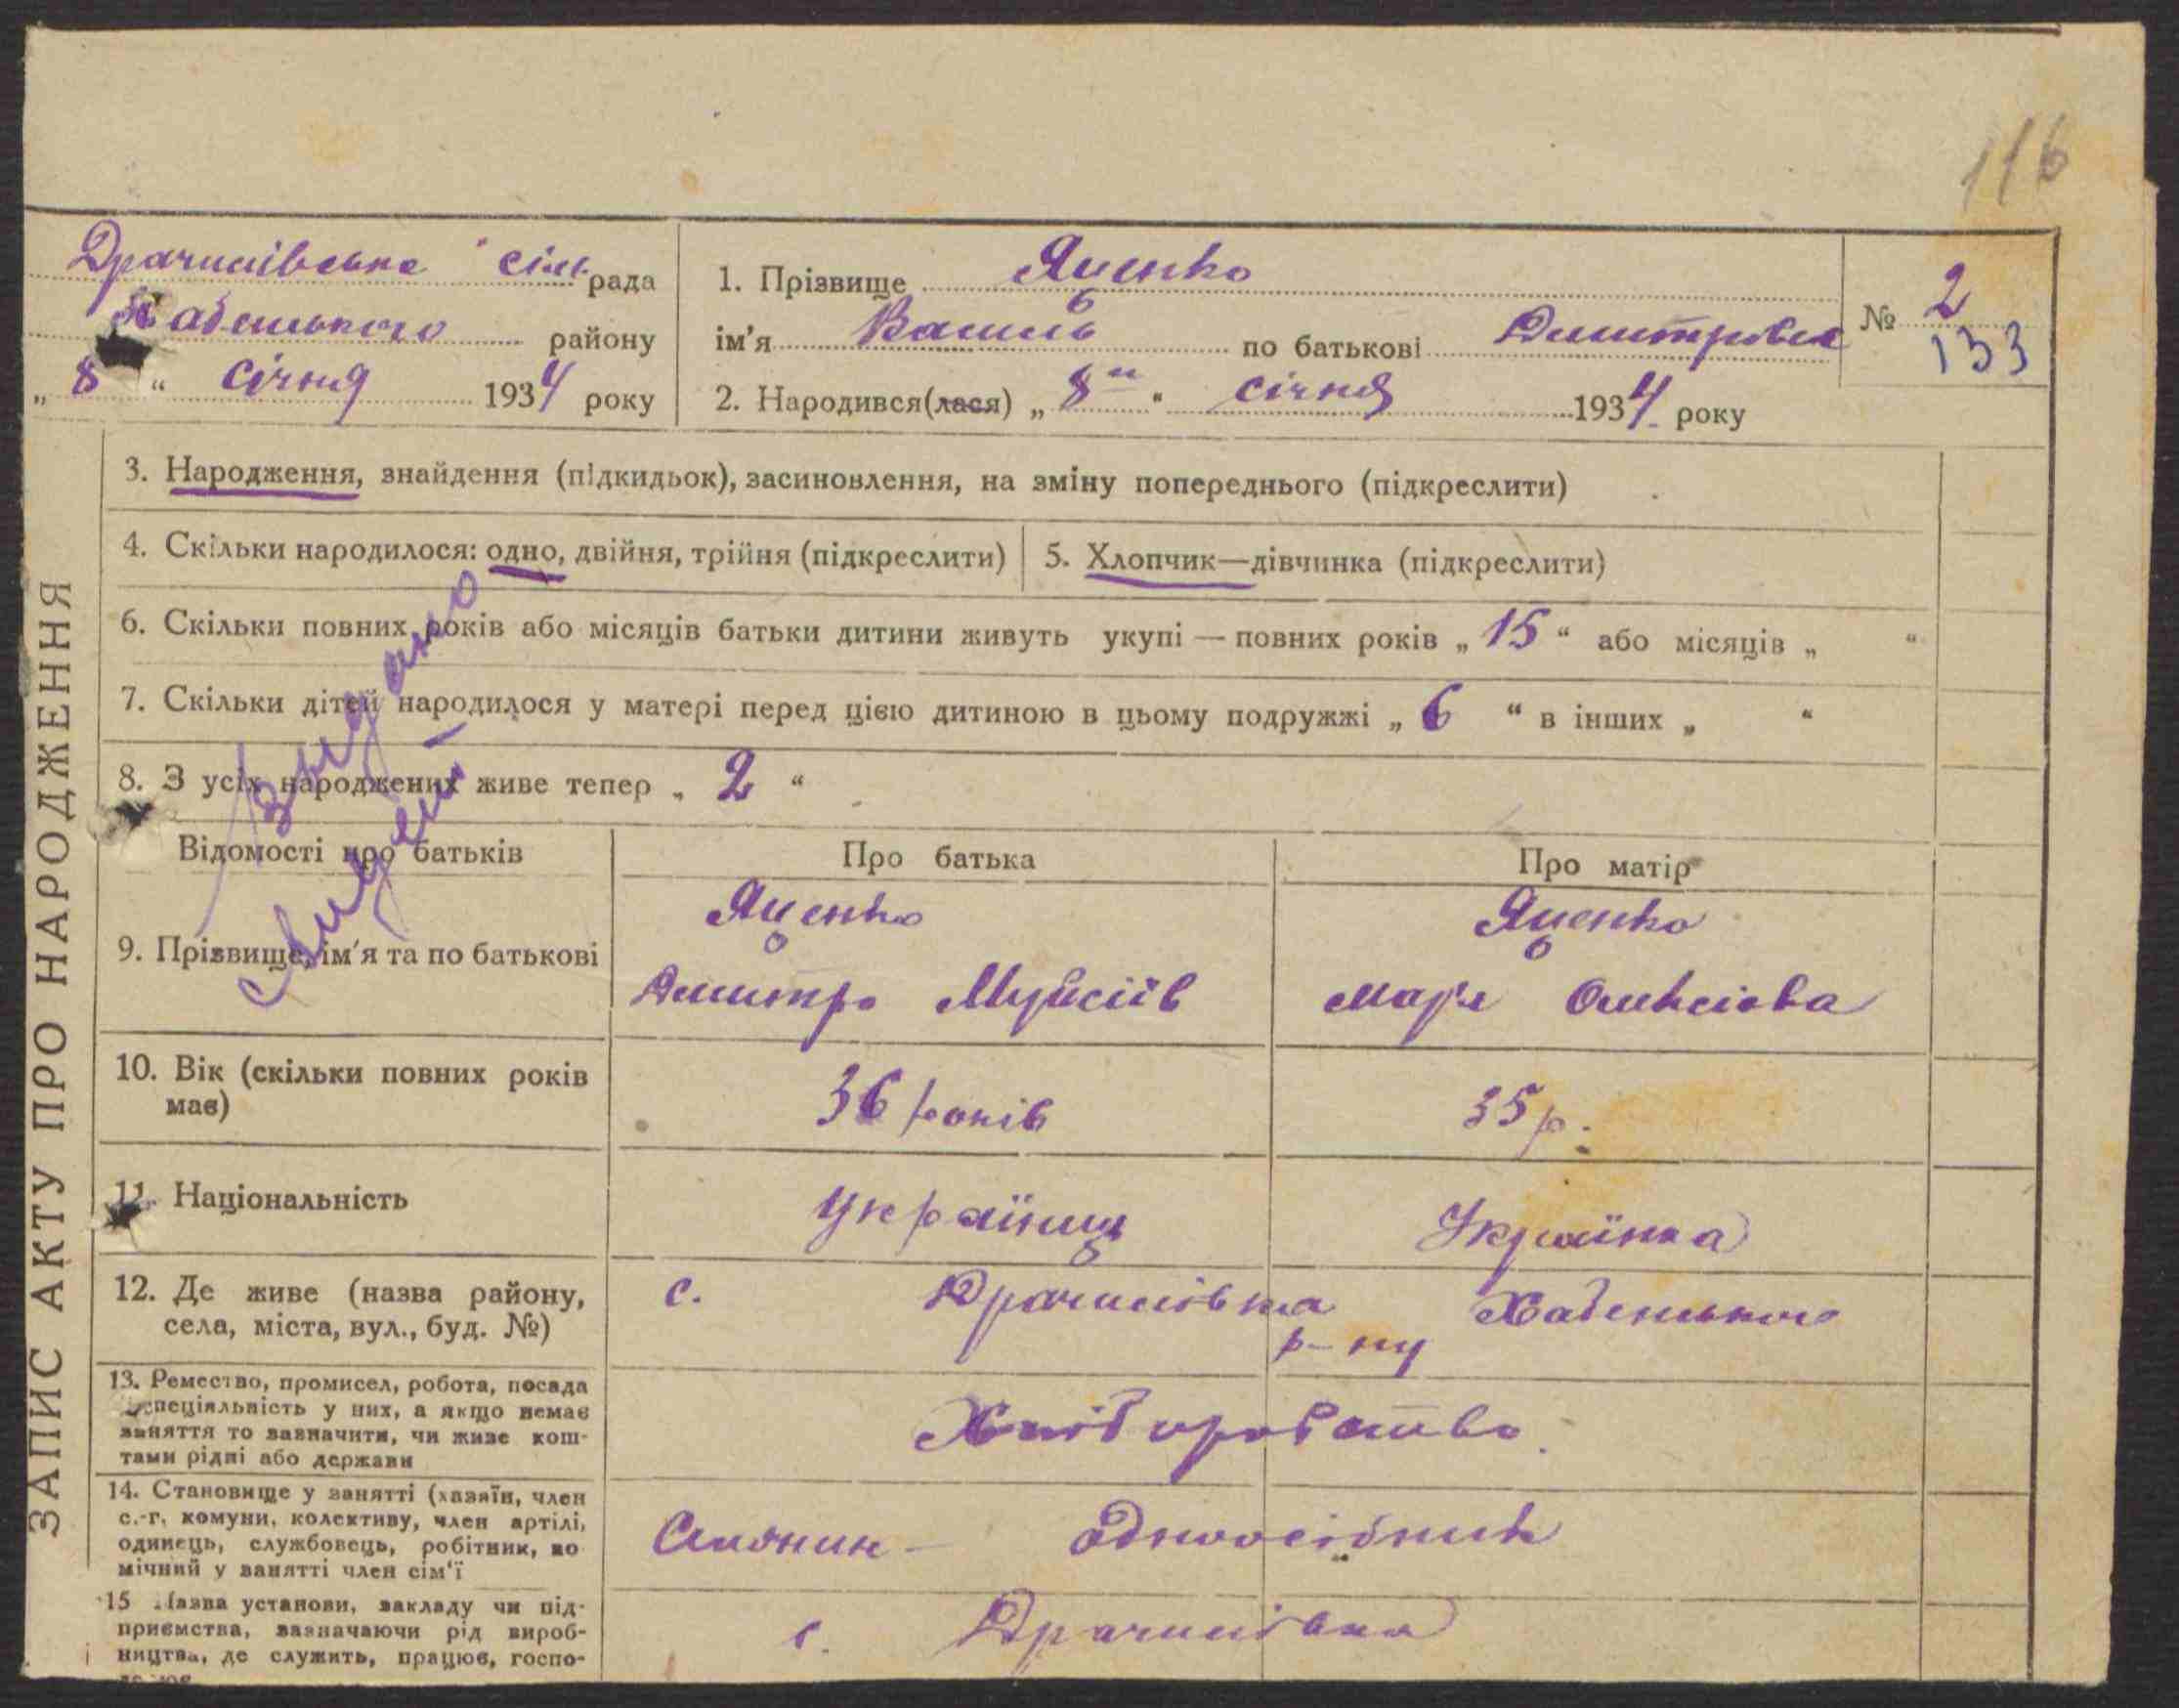 116
Драчиівська сіль рада
Хабенського району
„ 8 “ січня 1934 року
1. Прізвище Яценко
ім'я Василь по батькові Димитрович
2. Народився(лася) „ 8 “ січня 1934 року
№ 2
133
ЗАПИС АКТУ ПРО НАРОДЖЕННЯ
3. Народження, знайдення (підкидьок), засиновлення, на зміну попереднього (підкреслити)
4. Скільки народилося: одно, двійня, трійня (підкреслити)
5. Хлопчик—дівчинка (підкреслити)
6. Скільки повних років або місяців батьки дитини живуть укупі — повних років „ 15 “ або місяців „ “
7. Скільки дітей народилося у матері перед цією дитиною в цьому подружжі „ 6 “ в інших „ “
8. З усіх народжених живе тепер „ 2 “
Видано
Відомості про батьків
Про батька
Про матір
9. Прізвище, ім'я та по батькові
Яценко
Димитро Муйсіїв
Яценко
Мар'я Олексієва
10. Вік (скільки повних років
має)
36 років
35 р.
11. Національність
Українець
Українка
12. Де живе (назва району,
села, міста, вул., буд. №)
с. Хабенського
р-ну
13. Ремество, промисел, робота, посада
спеціяльність у них, а якщо немає
заняття то зазначити, чи живе кош-
тами рідні або держави
Хліборобство.
14. Становище у занятті (хазяїн, член
с.-г. комуни, колективу, член артілі,
одинець, службовець, робітник, по
мічний у занятті член сім'ї
Селянин – одноосібник
15 Назва установи, закладу чи під-
приємства, зазначаючи рід вироб-
ництва, де служить, працює, госпо-
с.